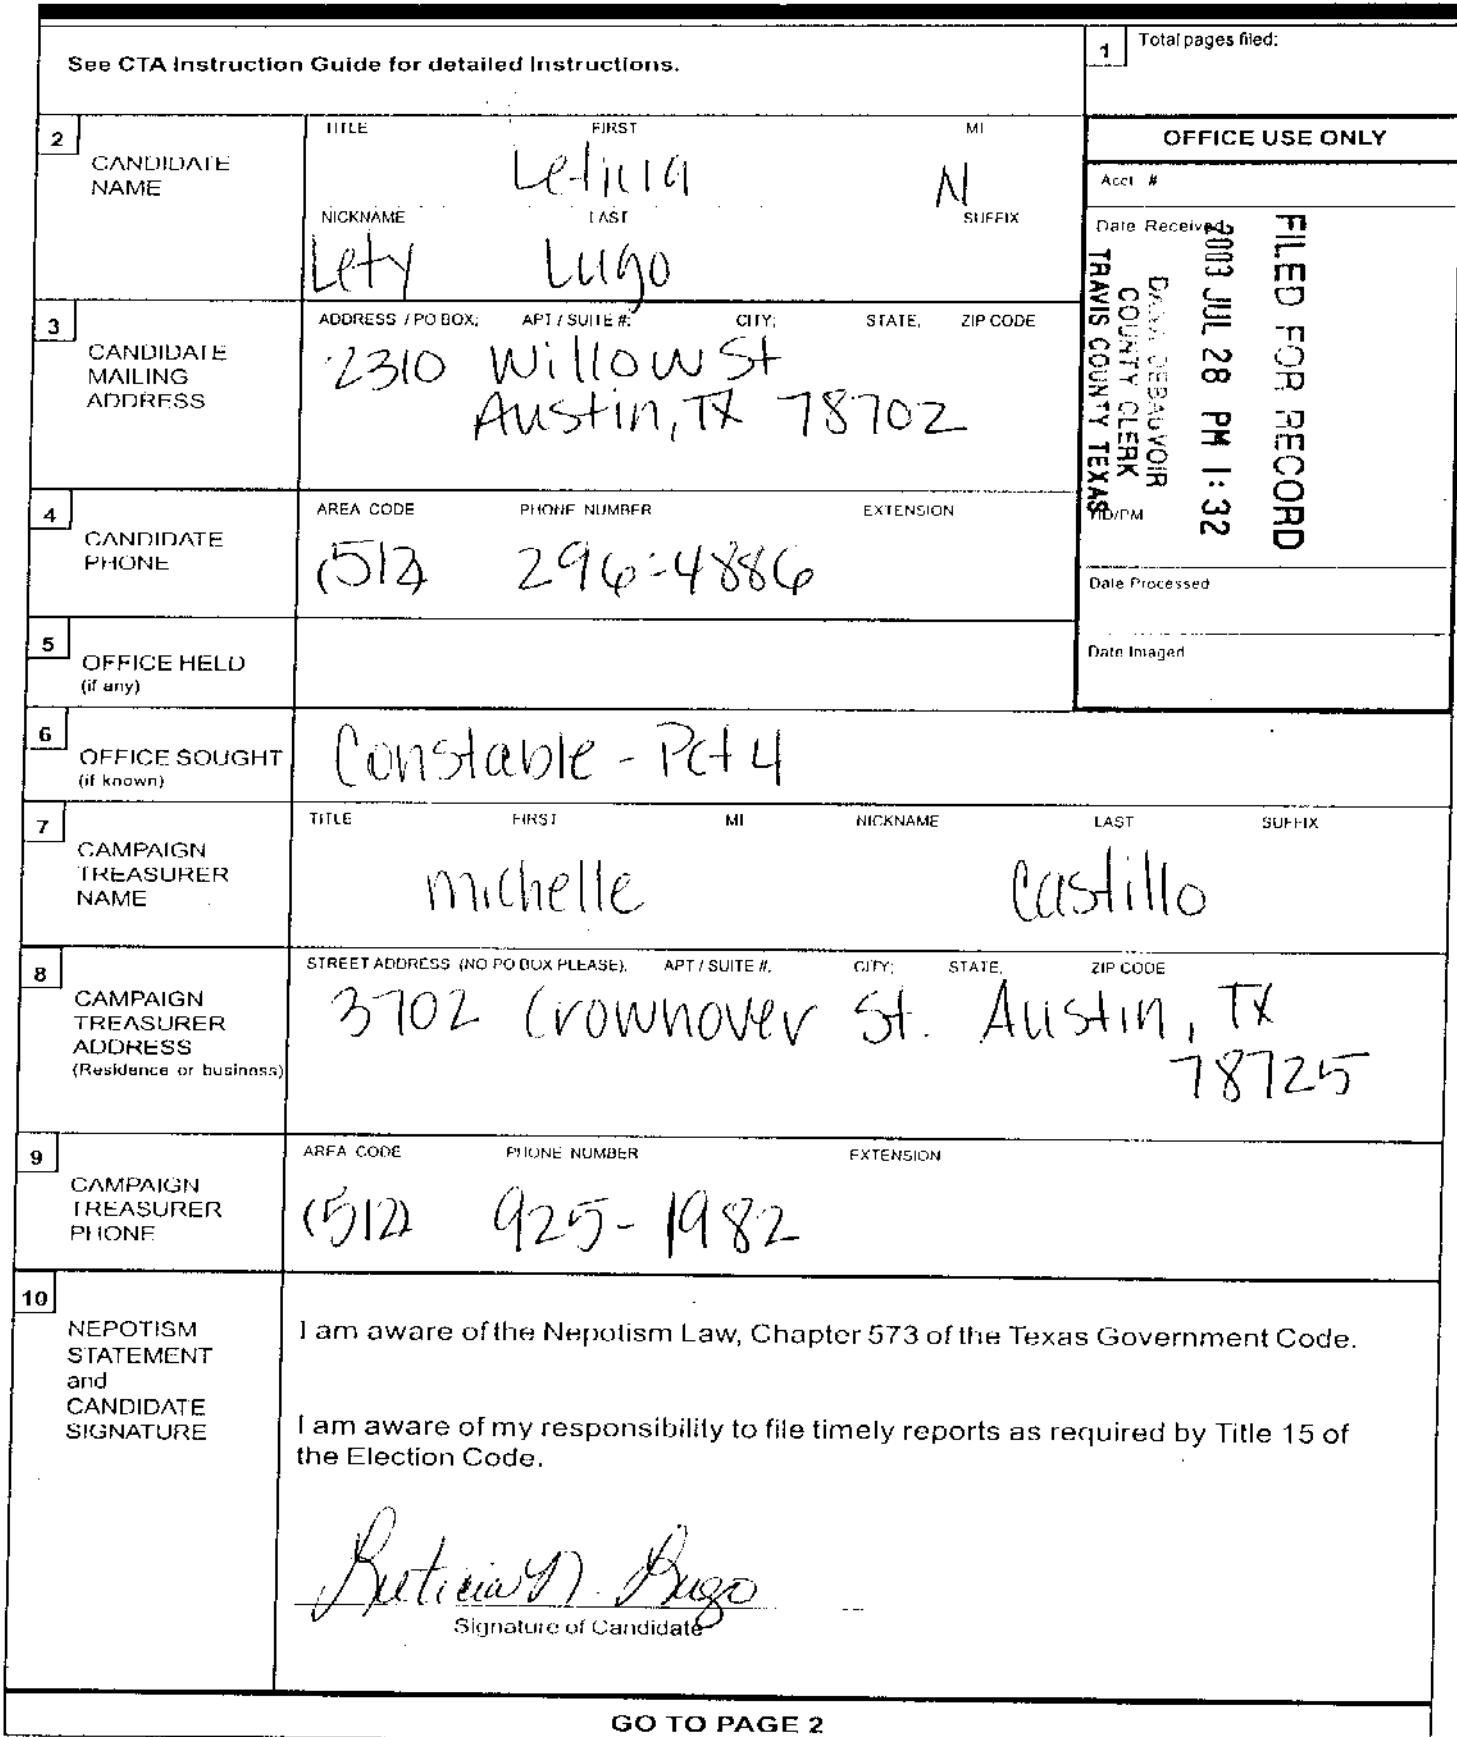 See CTA Instruction Guide for detailed Instructions.
1 Total pages filed:
2 CANDIDATE NAME
TITLE FIRST MI
Leticia N
NICKNAME LAST SUFFIX
Lety Lugo
OFFICE USE ONLY
Acct #
Date Received
FILED FOR RECORD
2003 JUL 28 PM 1:32
DANA DEBAUVOIR
COUNTY CLERK
TRAVIS COUNTY TEXAS
HD/PM
Date Processed
Date Imaged
3 CANDIDATE MAILING ADDRESS
ADDRESS / PO BOX; APT / SUITE #; CITY; STATE; ZIP CODE
2310 Willow St
Austin, TX 78702
4 CANDIDATE PHONE
AREA CODE PHONE NUMBER EXTENSION
(512) 296-4886
5 OFFICE HELD
(if any)
6 OFFICE SOUGHT
(if known)
Constable - Pct 4
7 CAMPAIGN TREASURER NAME
TITLE FIRST MI NICKNAME LAST SUFFIX
michelle Castillo
8 CAMPAIGN TREASURER ADDRESS
(Residence or business)
STREET ADDRESS (NO PO BOX PLEASE); APT / SUITE #; CITY; STATE; ZIP CODE
3702 Crownover St. Austin, TX
78725
9 CAMPAIGN TREASURER PHONE
AREA CODE PHONE NUMBER EXTENSION
(512) 925-1982
10 NEPOTISM STATEMENT and CANDIDATE SIGNATURE
I am aware of the Nepotism Law, Chapter 573 of the Texas Government Code.
I am aware of my responsibility to file timely reports as required by Title 15 of
the Election Code.
Leticia N. Lugo
Signature of Candidate
GO TO PAGE 2